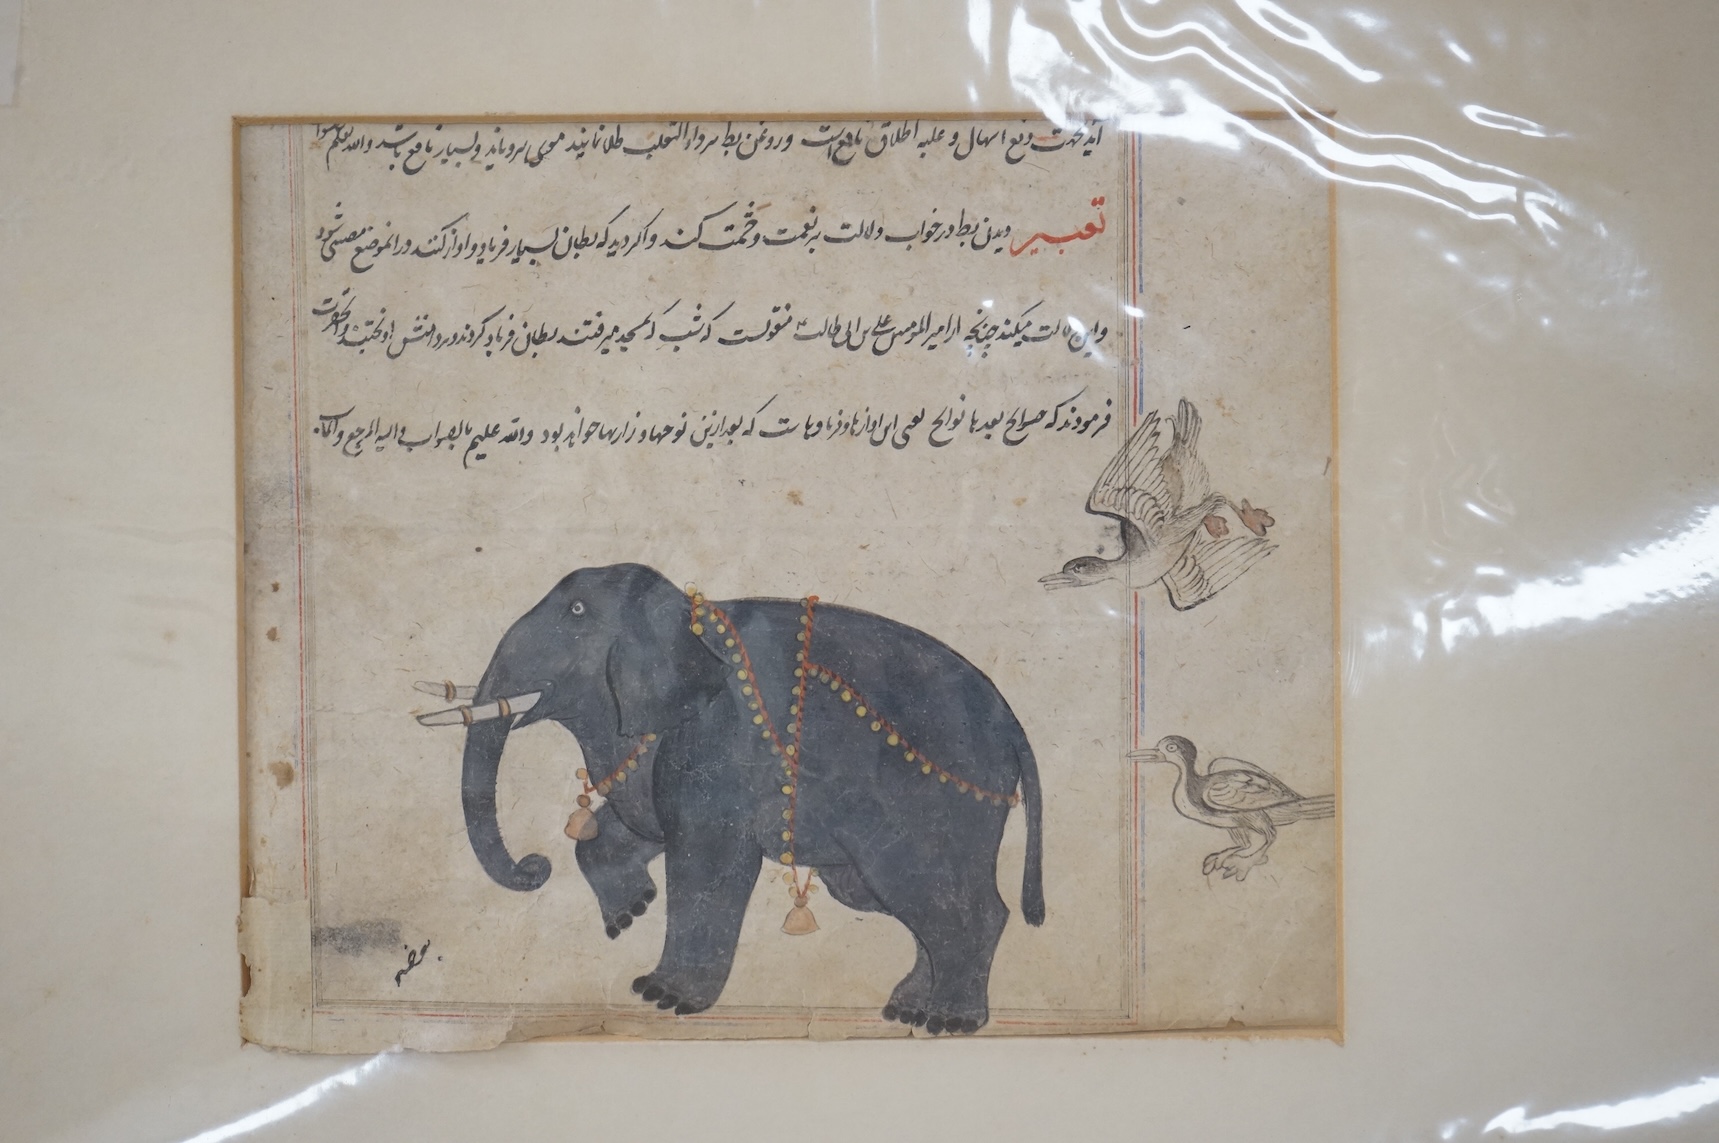 دفع اسهال و غلبه اطلاق نافع است و روغن بط بر داء الثعلب طلا نمایند موی برویاند و بسیار نافع باشد والله اعلم
تعبیر دیدن بط در خواب دلالت بر نعمت و حشمت کند و اگر دید که بطان بسیار فریاد و اواز کنند در انموضع مصیبتی شود
و این دلالت میکند چنانچه از امیر المومنین علی بن ابی طالب منقولست که شب که بمسجد میرفتند بطان فریاد کردند و در دامنش
فرمودند که صوایح بعدها نوایح یعنی این اوازها و فریادهاست که بعد ازین نوحها و زاریها خواهد بود والله علیم بالصواب و الیه المرجع والمآب